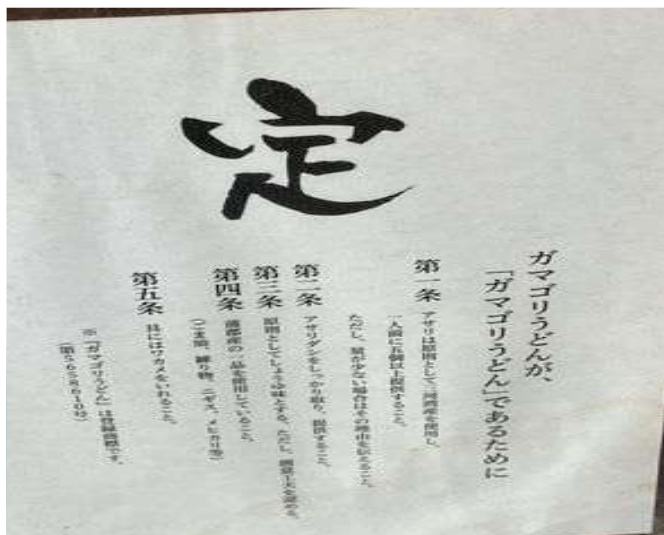 定
ガマゴリうどんが、
「ガマゴリうどん」であるために
第一条 アサリは原則として三河湾産を使用し、
一人前に五個以上提供すること。
ただし、量が少ない場合はその理由を伝えること。
第二条 アサリダシをしっかり取り、提供すること。
第三条 原則としてしょうゆ味とする。ただし、創意工夫を認める。
第四条 蒲郡産の一品を使用していること。
(ごま油、練り物、ニギス、メヒカリ等)
第五条 具にはワカメをいれること。
※「ガマゴリうどん」は登録商標です。